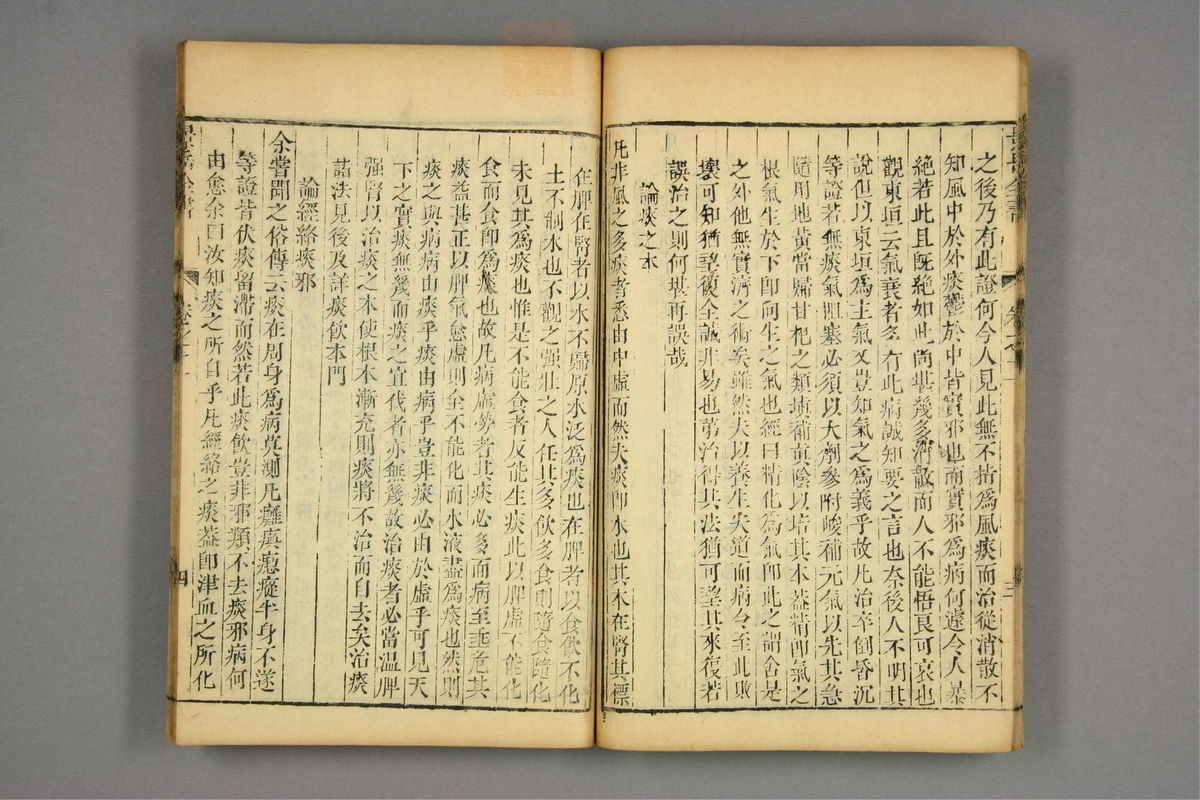 之後乃有此證何今人見此無不指為風痰而治從消散不
知風中於外痰鬱於中皆實邪也而實邪為病何遽令人暴
絕若此且既絕如此尚堪幾多消散而人不能悟良可哀也
觀東垣云氣衰者多有此病誠知要之言也奈後人不明其
說但以東垣為主氣又豈知氣之為義乎故凡治卒倒昏沉
等證若無痰氣阻塞必須以大劑參附峻補元氣以先其急
隨用地黃當歸甘杞之類填補真陰以培其本蓋精即氣之
根氣生於下即向生之氣也經曰精化為氣即此之謂舍是
之外他無實濟之術矣雖然夫以養生失道而病令至此敗
壞可知猶望復全誠非易也第治得其法猶可望其來復若
誤治之則何堪再誤哉
論痰之本
凡非風之多痰者悉由中虛而然夫痰即水也其本在腎其標
在脾在腎者以水不歸原水泛為痰也在脾者以食飲不化
土不制水也不觀之強壯之人任其多飲多食則隨食隨化
未見其為痰也惟是不能食者反能生痰此以脾虛不能化
食而食即為痰也故凡病虛勞者其痰必多而病至垂危其
痰益甚正以脾氣愈虛則全不能化而水液盡為痰也然則
痰之與病病由痰乎痰由病乎豈非痰必由於虛乎可見天
下之實痰無幾而痰之宜伐者亦無幾故治痰者必當溫脾
强腎以治痰之本使根本漸充則痰將不治而自去矣治痰
諸法見後及詳痰飲本門
論經絡痰邪
余嘗聞之俗傳云痰在周身為病莫測凡癱瘓瘛瘲半身不遂
等證皆伏痰留滯而然若此痰飲豈非邪類不去痰邪病何
由愈余曰汝知痰之所自乎凡經絡之痰蓋即津血之所化
四